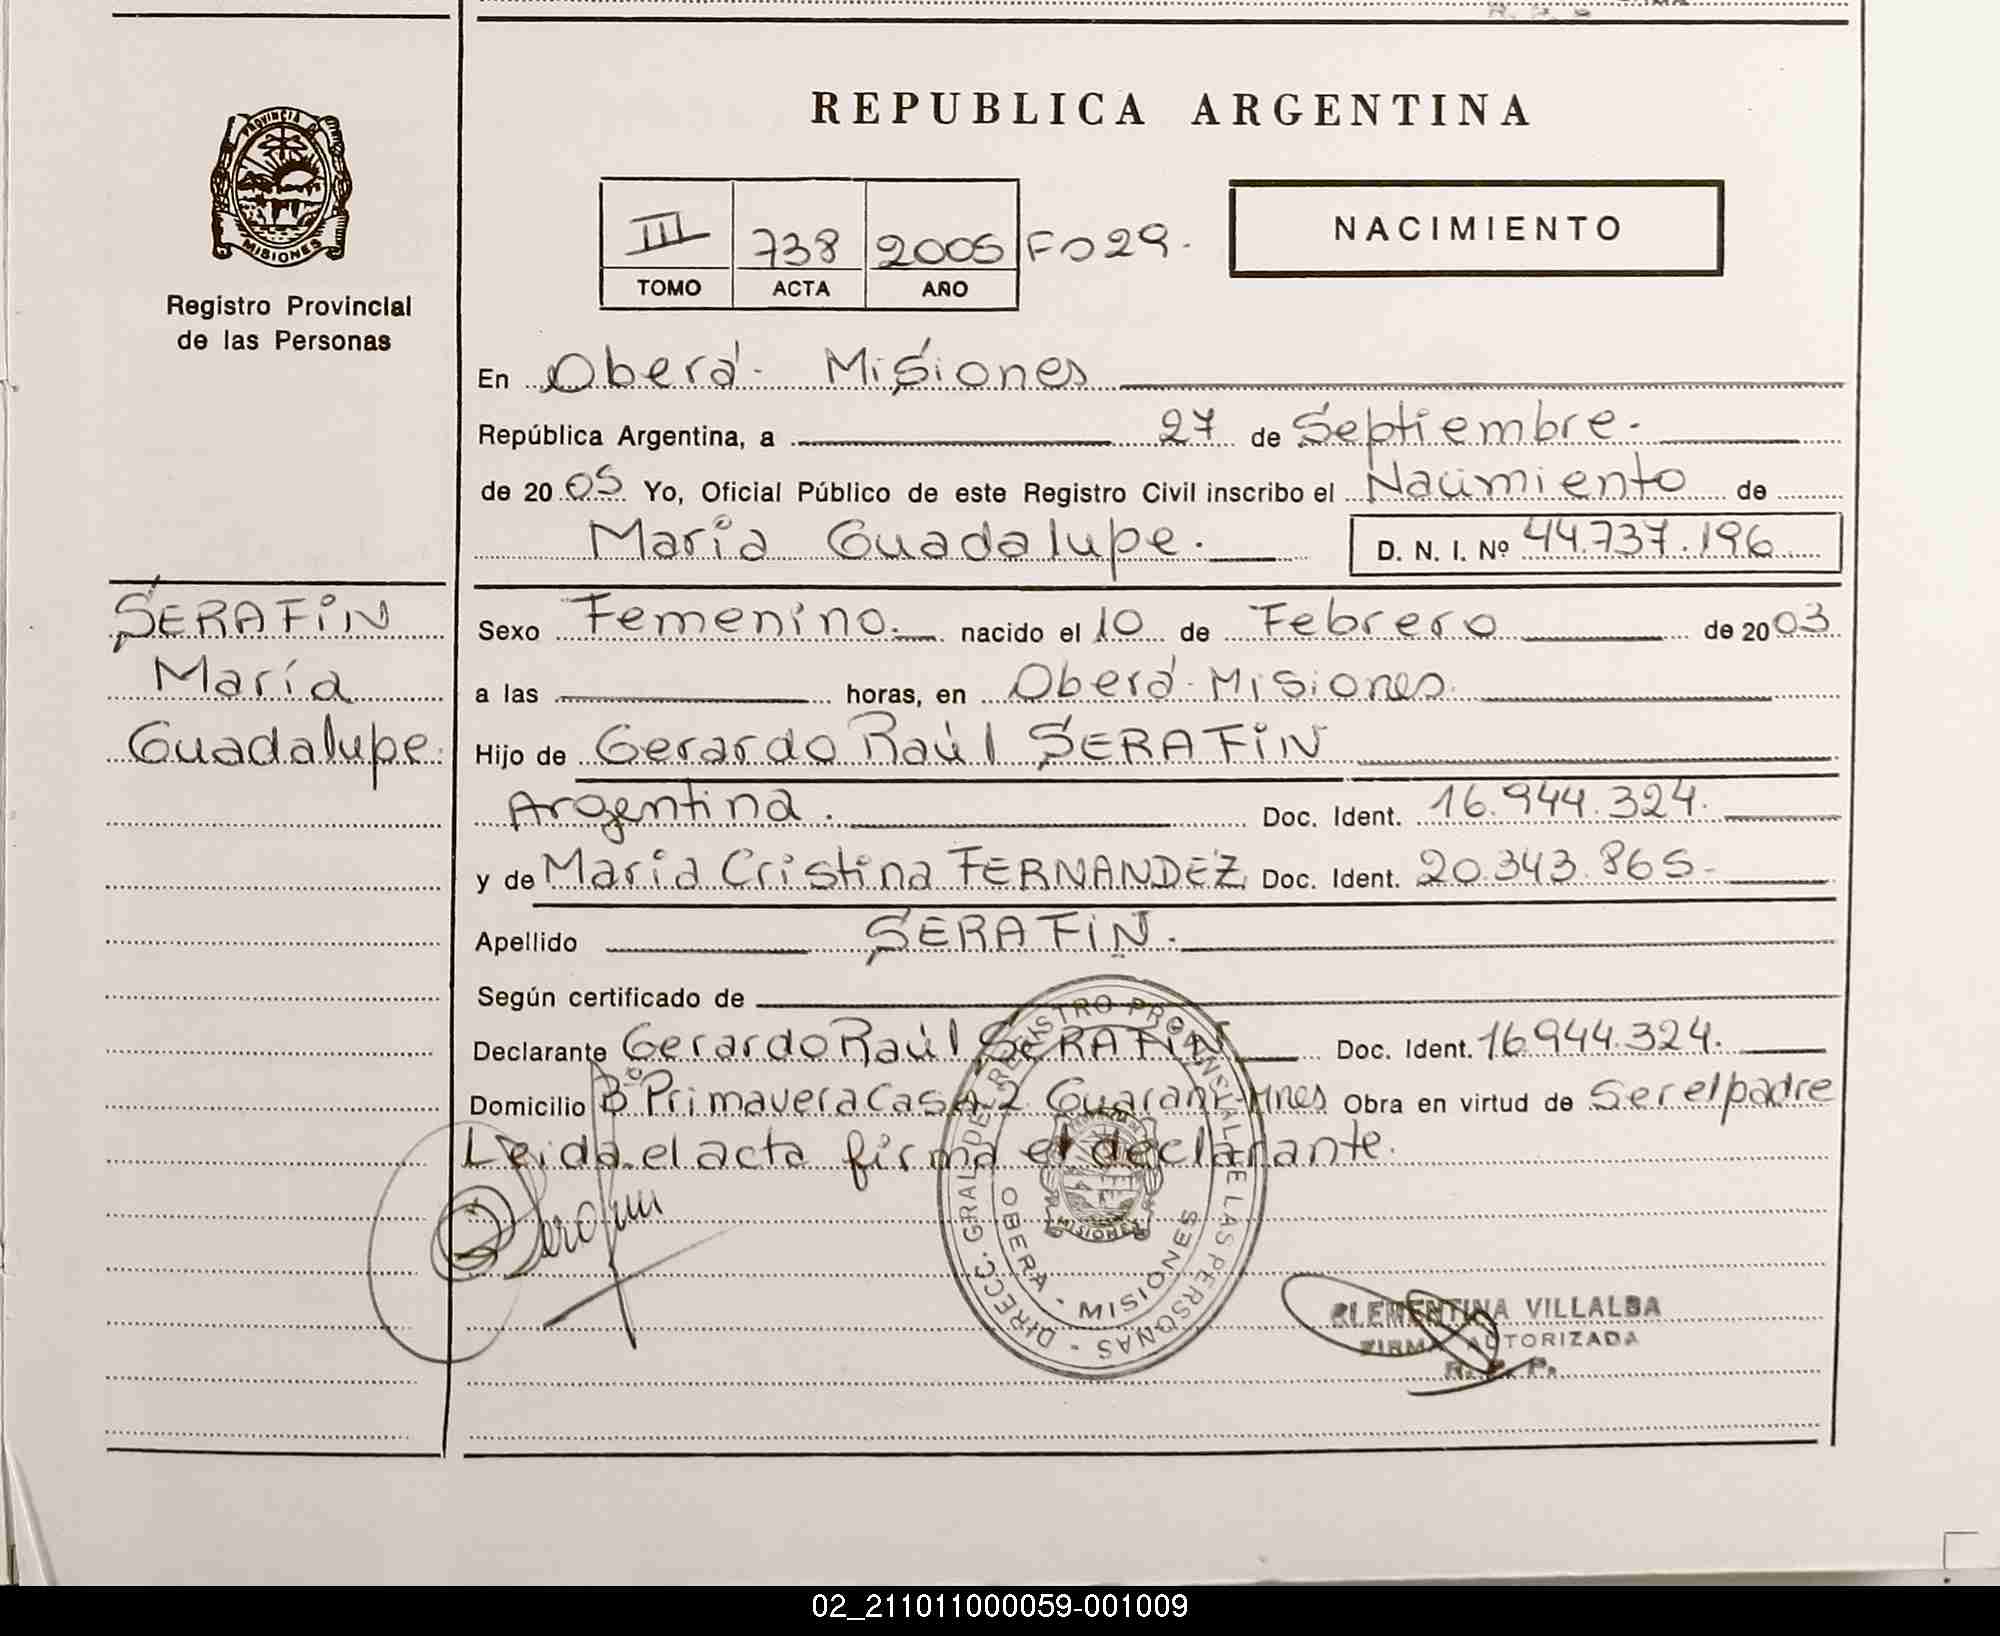 REPUBLICA ARGENTINA
PROVINCIA DE
MISIONES
Registro Provincial
de las Personas
III 738 2005 Fo 29.
TOMO ACTA AÑO
NACIMIENTO
En Oberá - Misiones
República Argentina, a 27 de Septiembre.
de 2005 Yo, Oficial Público de este Registro Civil inscribo el Nacimiento de
María Guadalupe. D. N. I. Nº 44.737.196
SERAFIN
María
Guadalupe.
Sexo Femenino. nacido el 10 de Febrero de 2003
a las horas, en Oberá - Misiones.
Hijo de Gerardo Raúl SERAFIN
Argentina. Doc. Ident. 16.944.324.
y de María Cristina FERNANDEZ Doc. Ident. 20.343.865-
Apellido SERAFIN.
Según certificado de
Declarante Gerardo Raúl SERAFIN Doc. Ident. 16944.324.
Domicilio Bº Primavera Casa 2 Guaraní-Mnes Obra en virtud de Ser el padre
Leida el acta firma el declarante.
Serafin
DIRECC. GRAL. DEL REGISTRO PROVINCIAL DE LAS PERSONAS -
OBERA - MISIONES
MISIONES
CLEMENTINA VILLALBA
FIRMA AUTORIZADA
R. P. P.
02_211011000059-001009